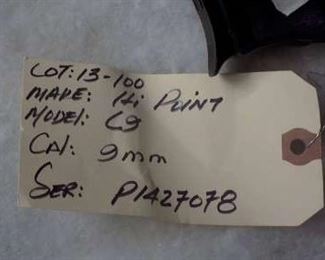 LOT: 13-100
MAKE: Hi Point
MODEL: C9
CAL: 9mm
SER: P1427078